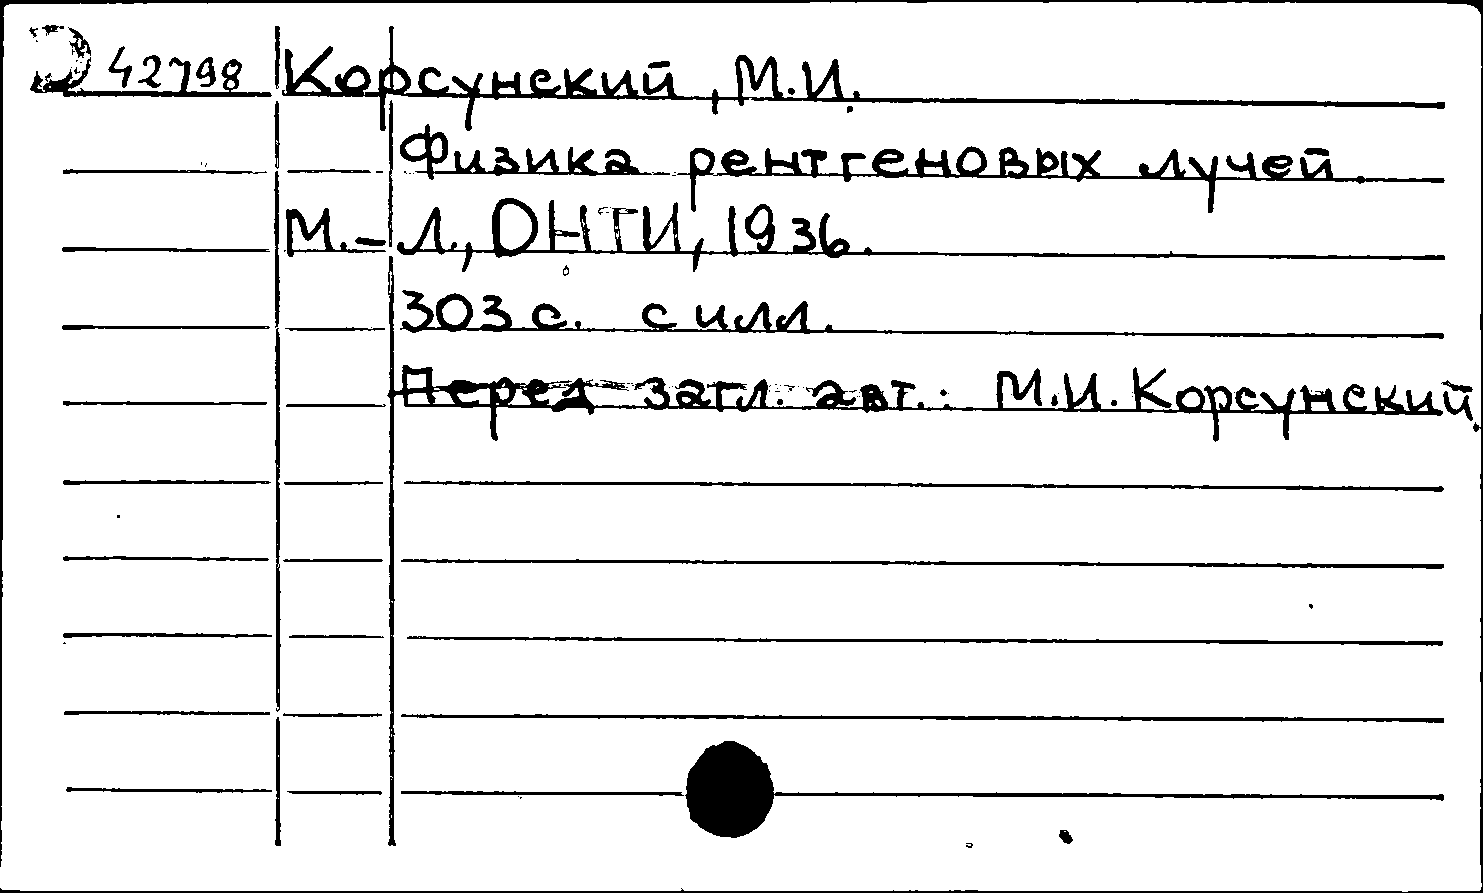 42798 Корсунский, М.И.
Физика рентгеновых лучей.
М.-Л., ОНТИ, 1936.
303 с. с илл.
Перед загл. авт.: М.И. Корсунский.